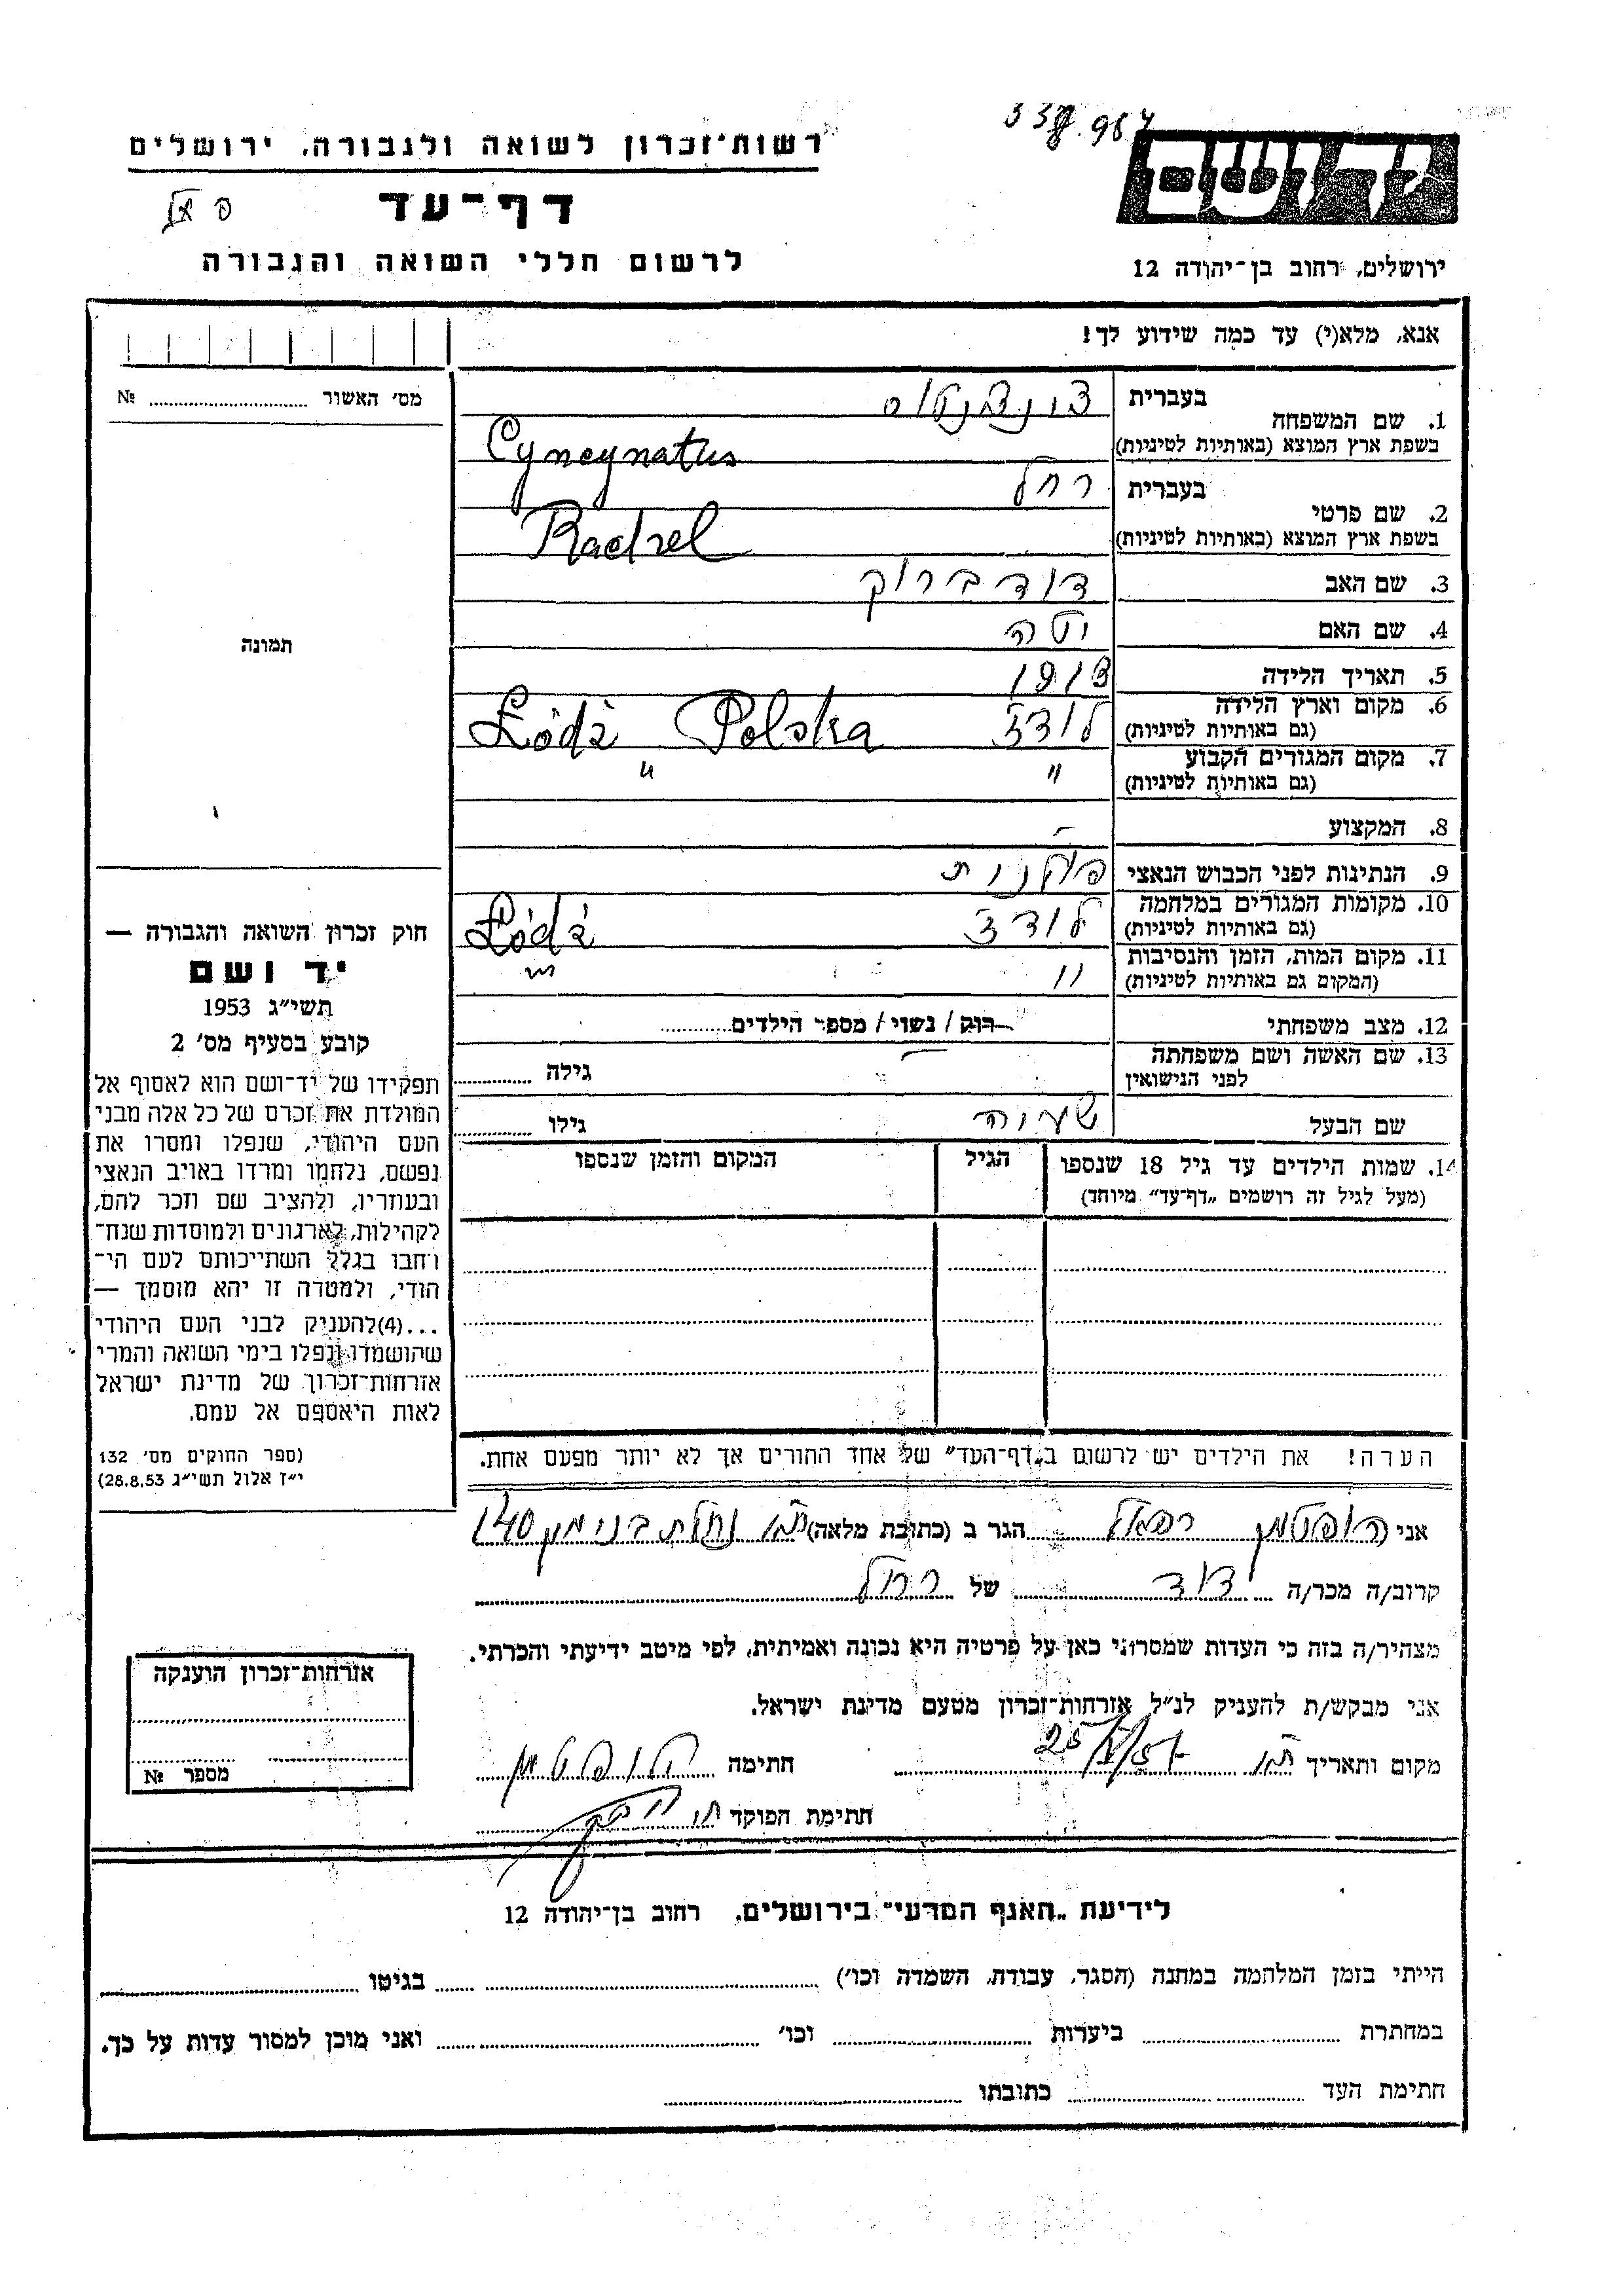 רשות־זכרון לשואה ולגבורה, ירושלים
דף־עד
לרשום חללי השואה והגבורה
יד ושם
ירושלים, רחוב בן־יהודה 12
אנא, מלא(י) עד כמה שידוע לך!
מס׳ האשור № 
תמונה
חוק זכרון השואה והגבורה —
יד ושם
תשי״ג 1953
קובע בסעיף מס׳ 2
תפקידו של יד־ושם הוא לאסוף אל
המולדת את זכרם של כל אלה מבני
העם היהודי, שנפלו ומסרו את
נפשם, נלחמו ומרדו באויב הנאצי
ובעוזריו, ולהציב שם וזכר להם,
לקהילות, לארגונים ולמוסדות שנח־
רחבו בגלל השתייכותם לעם הי־
הודי, ולמטרה זו יהא מוסמך —
...(4)להעניק לבני העם היהודי
שהושמדו ונפלו בימי השואה והמרי
אזרחות־זכרון של מדינת ישראל
לאות היאספם אל עמם.
(ספר החוקים מס׳ 132
י״ז אלול תשי״ג 28.8.53)
1. שם המשפחה בעברית
בשפת ארץ המוצא (באותיות לטיניות) Cyncynatus
2. שם פרטי בעברית רחל
בשפת ארץ המוצא (באותיות לטיניות) Rachel
3. שם האב דוד ברוך
4. שם האם יטה
5. תאריך הלידה 1913
6. מקום וארץ הלידה (גם באותיות לטיניות) לודז Łódź Polska
7. מקום המגורים הקבוע (גם באותיות לטיניות) " "
8. המקצוע —
9. הנתינות לפני הכבוש הנאצי פולנית
10. מקומות המגורים במלחמה (גם באותיות לטיניות) לודז Łódź
11. מקום המות, הזמן והנסיבות (המקום גם באותיות לטיניות) " "
12. מצב משפחתי רוק / נשוי / מספר הילדים
13. שם האשה ושם משפחתה לפני הנישואין — גילה
שם הבעל ישעיה גילו
14. שמות הילדים עד גיל 18 שנספו (מעל לגיל זה רושמים „דף־עד״ מיוחד) הגיל המקום והזמן שנספו
הערה! את הילדים יש לרשום ב„דף־העד״ של אחד ההורים אך לא יותר מפעם אחת.
אני הופטמן רפאל הגר ב (כתובת מלאה) ת״א נחלת בנימין 140
קרוב/ה מכר/ה דוד של רחל
מצהיר/ה בזה כי העדות שמסרתי כאן על פרטיה היא נכונה ואמיתית, לפי מיטב ידיעתי והכרתי.
אני מבקש/ת להעניק לנ״ל אזרחות־זכרון מטעם מדינת ישראל.
מקום ותאריך ת״א חתימה הופטמן
חתימת הפוקד
אזרחות־זכרון הוענקה
מספר №
לידיעת „האגף המדעי״ בירושלים, רחוב בן־יהודה 12
הייתי בזמן המלחמה במחנה (הסגר, עבודה, השמדה וכו׳) בגיטו
במחתרת ביערות וכו׳ ואני מוכן למסור עדות על כך.
חתימת העד כתובתו